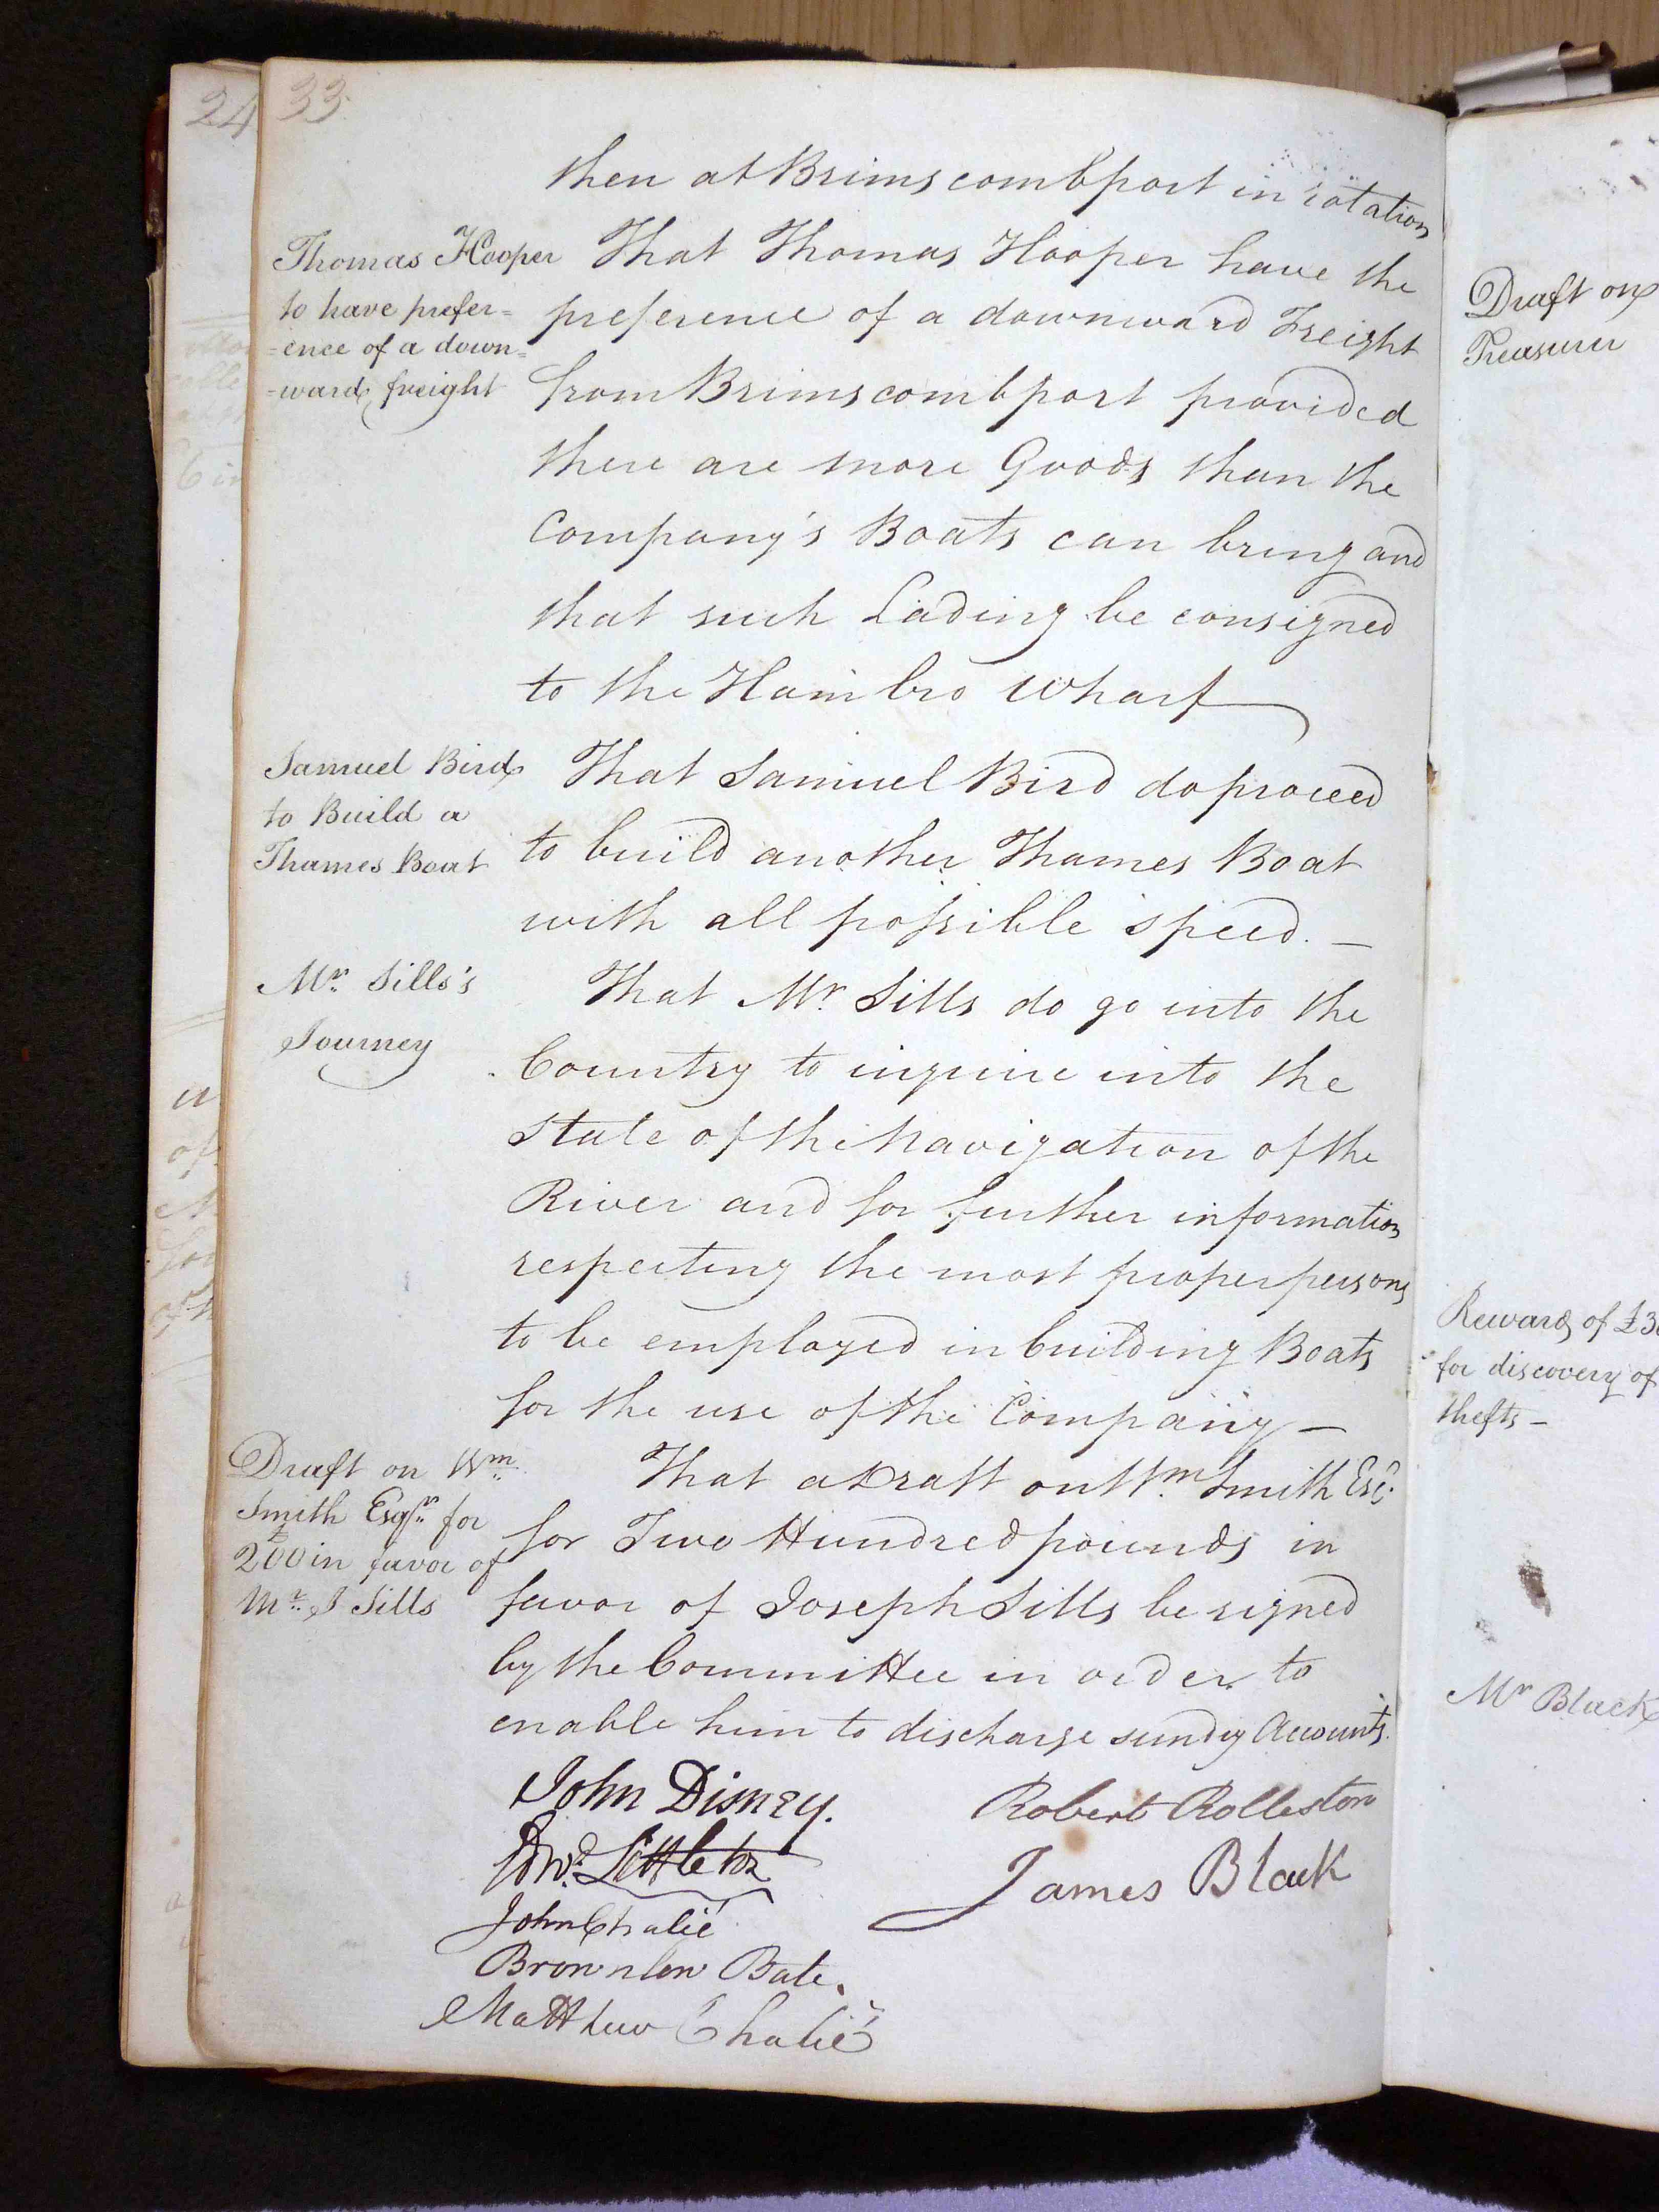 24
33
then at Brimscombport in rotation
Thomas Hooper
to have prefer=
=ence of a down=
=ward freight
That Thomas Hooper have the
preference of a downward Freight
from Brimscombport provided
there are more Goods than the
Company's Boats can bring and
that such Lading be consigned
to the Hambro Wharf
Samuel Bird
to Build a
Thames Boat
That Samuel Bird do proceed
to build another Thames Boat
with all possible speed. —
Mr. Sills's
Journey
That Mr. Sills do go into the
Country to inquire into the
State of the Navigation of the
River and for further information
respecting the most proper persons
to be employed in building Boats
for the use of the Company —
Draft on Wm.
Smith Esqr. for
£200 in favor of
Mr. J Sills
That a Draft on Wm. Smith Esq.
for Two Hundred pounds in
favor of Joseph Sills be signed
by the Committee in order to
enable him to discharge sundry Accounts.
John Disney.
Edwd. Littleton
John Chalié
Brownlow Bate.
Matthew Chalié
Robert Rolleston
James Black
Draft on
Treasurer
Reward of £3
for discovery of
thefts —
Mr Black